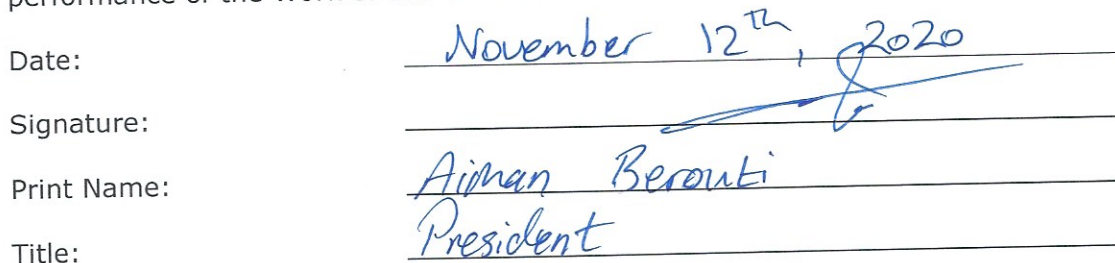 performance of the Work
Date: November 12th, 2020
Signature:
Print Name: Aiman Berouti
Title: President